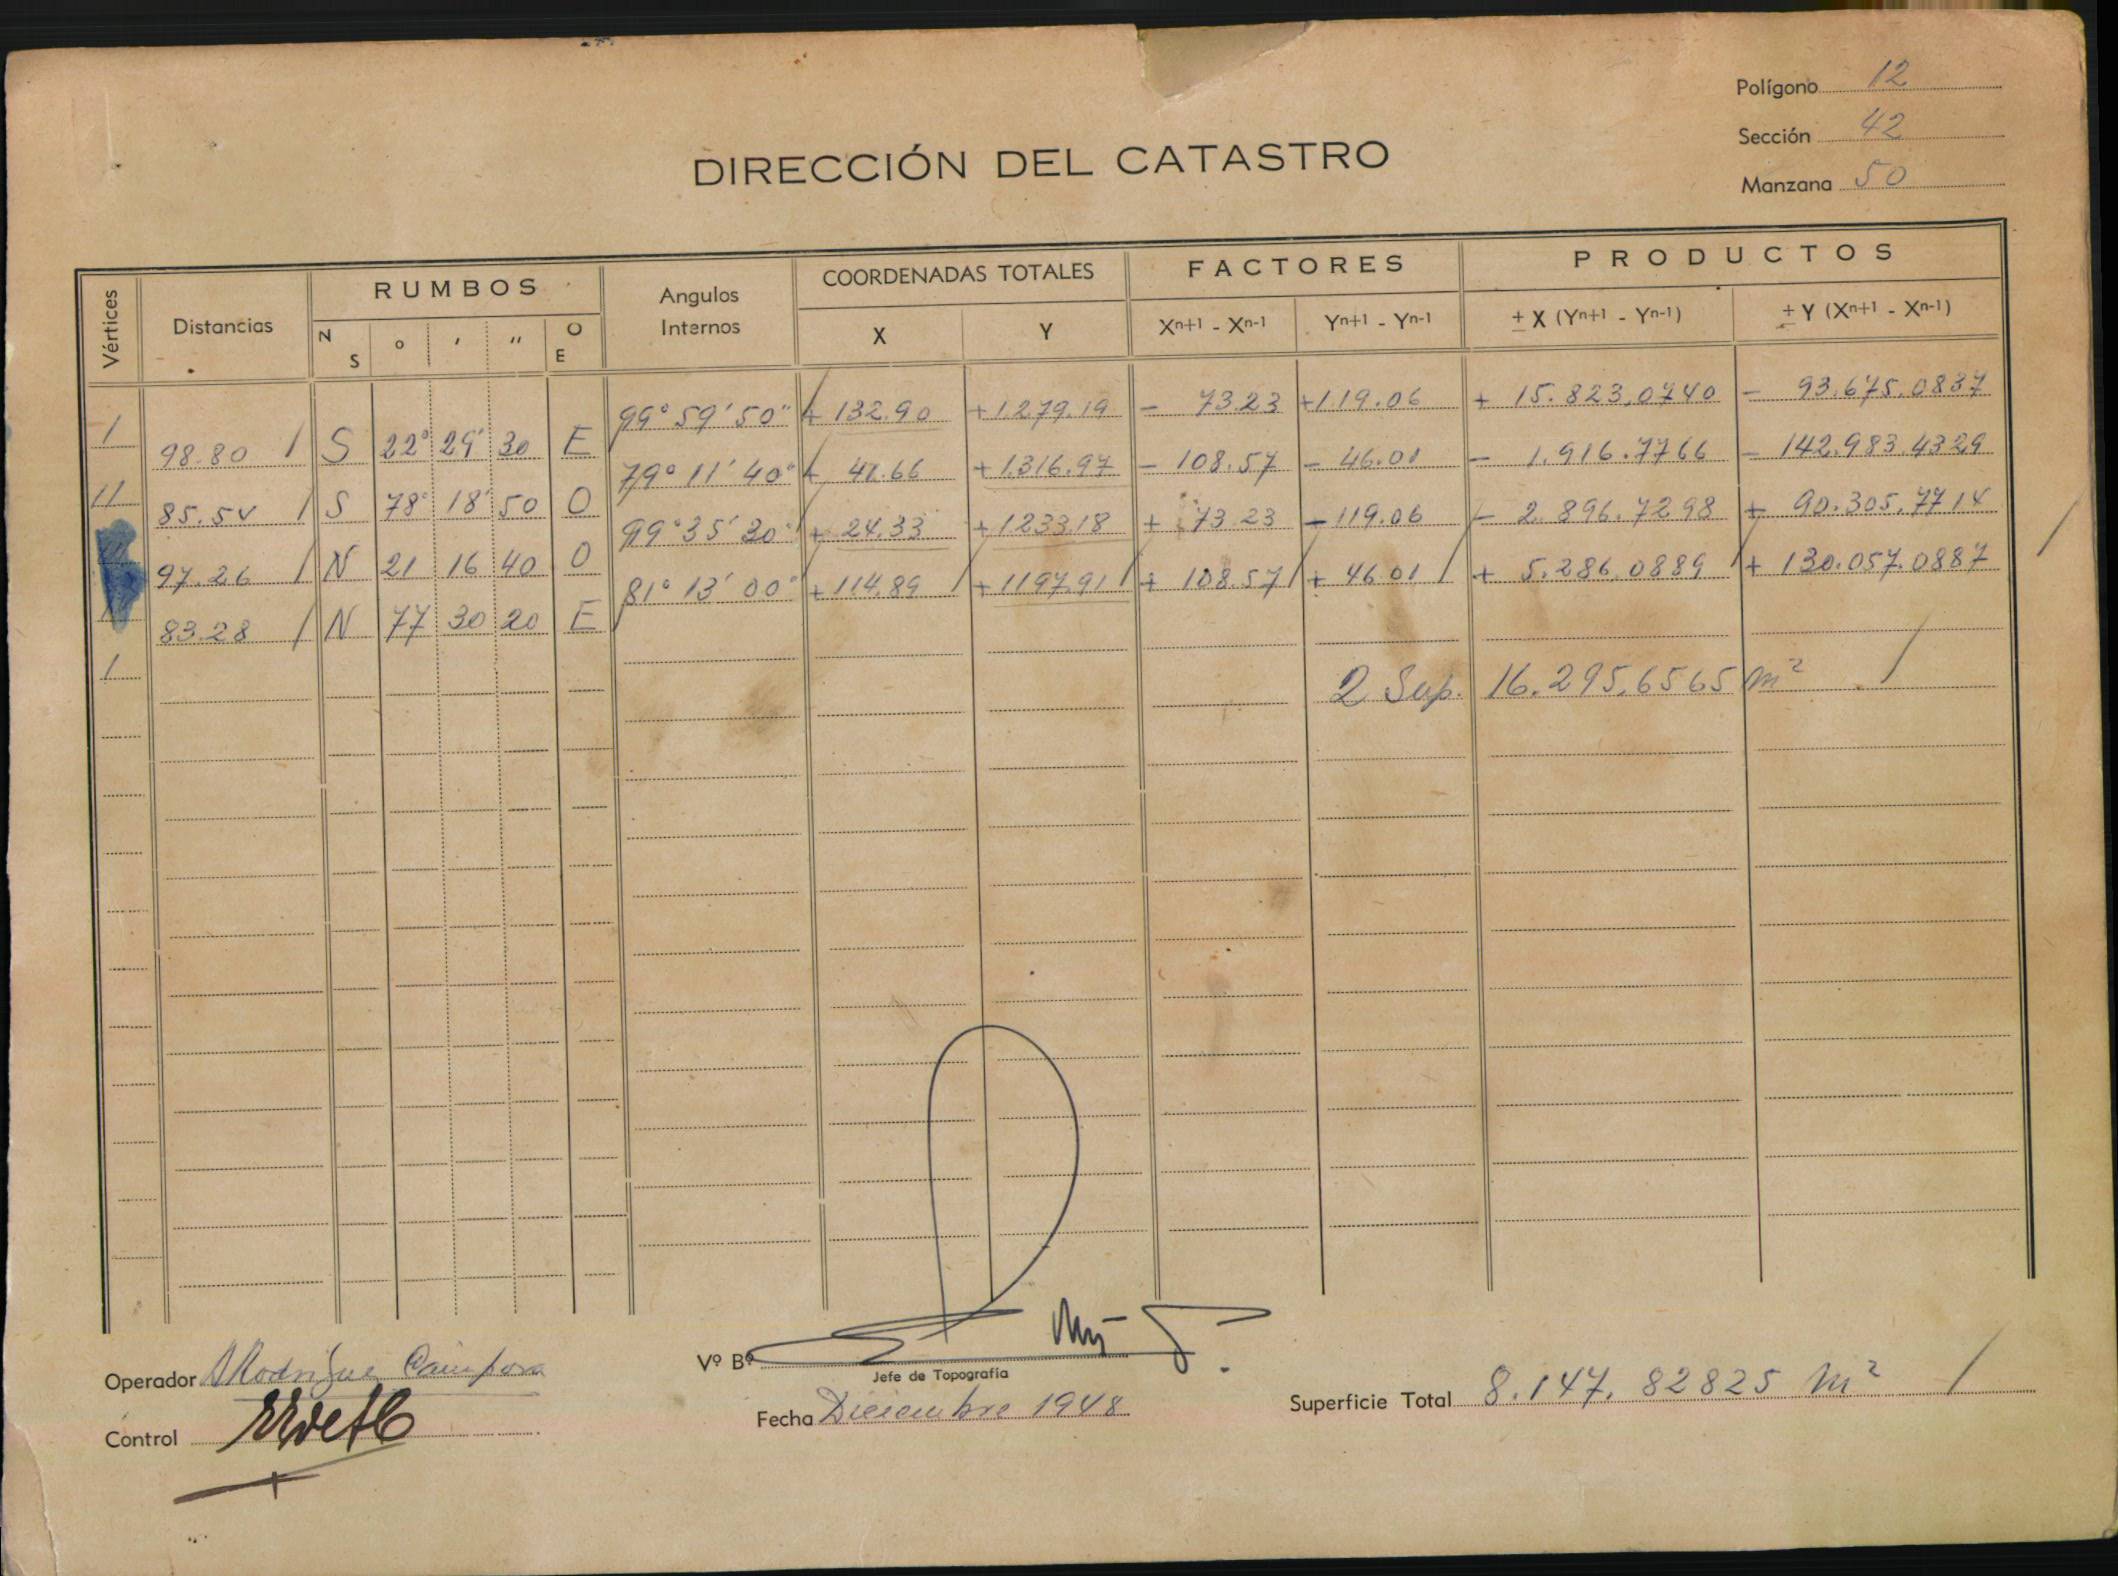 Polígono 12
Sección 42
Manzana 50
DIRECCIÓN DEL CATASTRO
Vértices Distancias RUMBOS Angulos Internos COORDENADAS TOTALES FACTORES PRODUCTOS
N S ° ' " O E X Y Xn+1 - Xn-1 Yn+1 - Yn-1 ± X (Yn+1 - Yn-1) ± Y (Xn+1 - Xn-1)
99° 59' 50" + 132.90 + 1.279.19 - 73.23 + 119.06 + 15.823,0740 - 93.675.0837
I
98.80 S 22° 29' 30 E
79° 11' 40" + 41.66 + 1.316.97 - 108.57 - 46.01 - 1.916.7766 - 142.983.4329
II
85.54 S 78° 18' 50 O
99° 35' 30" + 24.33 + 1233.18 + 73.23 - 119.06 - 2.896.7298 + 90.305.7714
97.26 N 21 16 40 O
81° 13' 00" + 114.89 + 1197.91 + 108.57 + 46.01 + 5.286.0889 + 130.057.0887
83.28 N 77 30 20 E
I
2 Sup. 16.295.6565 m²
Operador Rodríguez
Control
Vº Bº
Jefe de Topografía
Fecha Diciembre 1948
Superficie Total 8.147.82825 m²